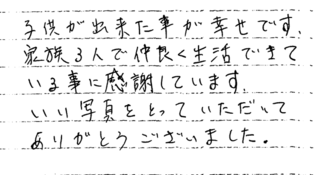 子供が出来た事が幸せです.
家族3人で仲良く生活できて
いる事に感謝しています.
いい写真をとっていただいて
ありがとうございました。